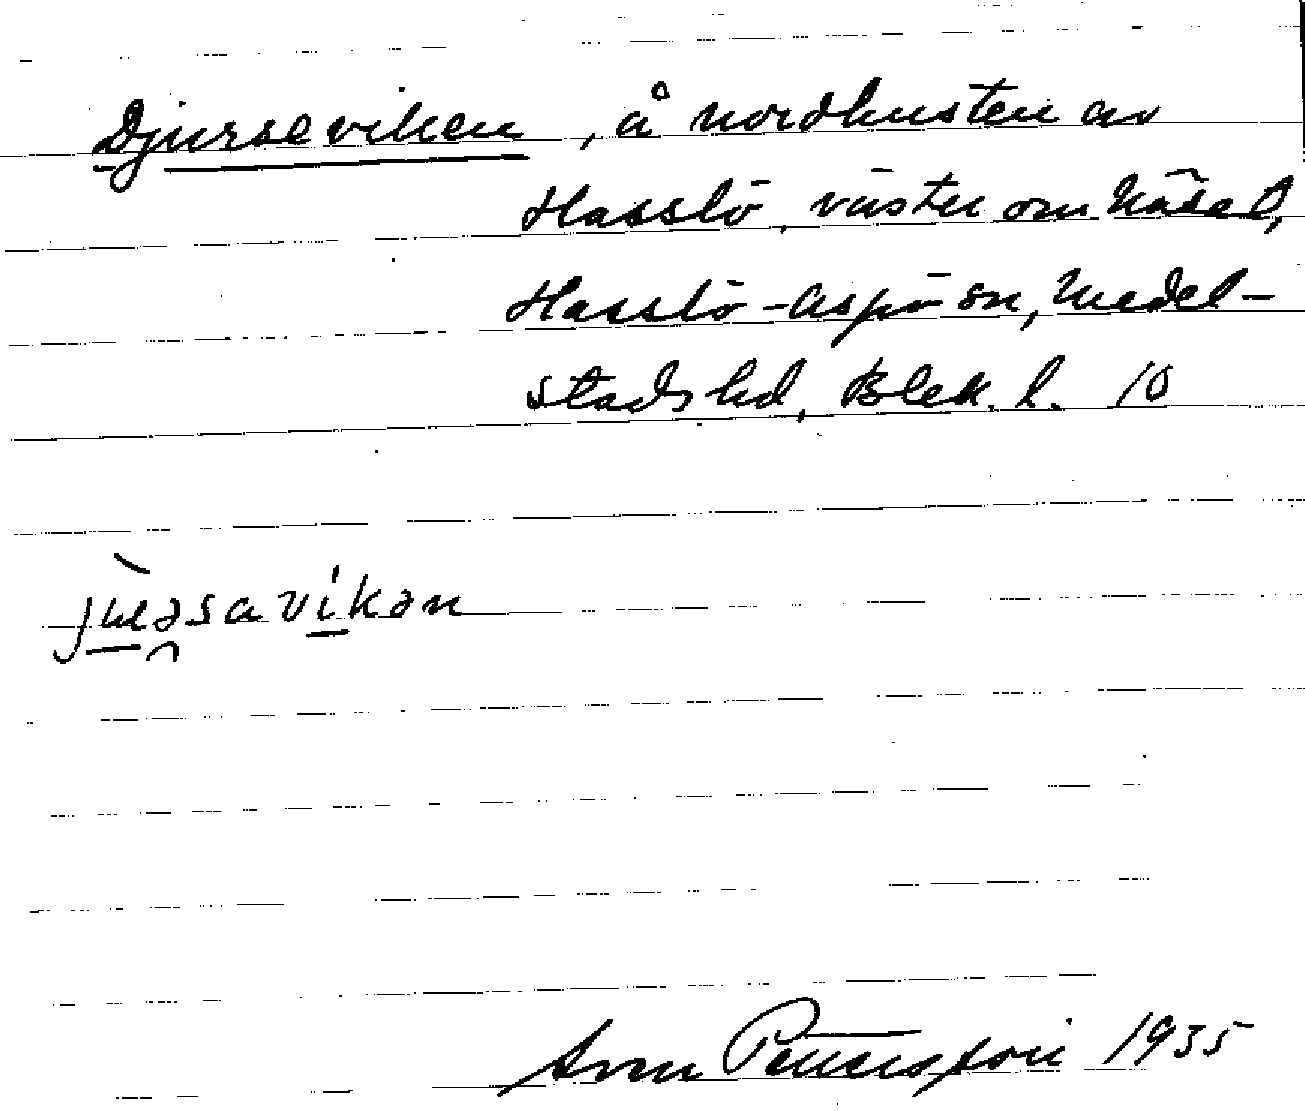 Djurseviken, å nordkusten av
Hasslö, väster om Näset,
Hasslö-Aspö sn, Medel-
stads hd, Blek. l. 10
juəsavikən
Pettersson 1935